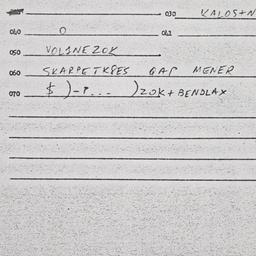 030 KALOS+N
040 0 042
050 VOLINEZOK
060 SKARPETKŐES GAP MENER
070 $ )-P... )ZOK+BENDLAX